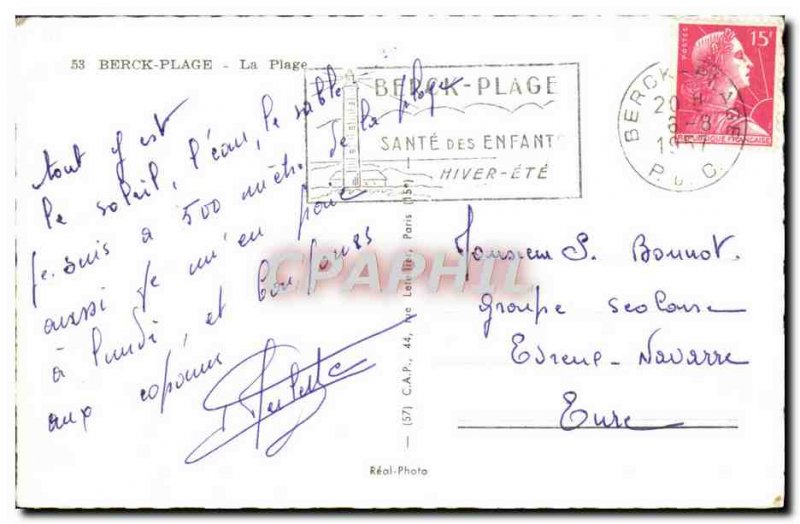 53 BERCK-PLAGE - La Plage
BERCK-PLAGE
SANTÉ DES ENFANTS
HIVER-ÉTÉ
BERCK-PLAGE
20 H
8-8
19
P. D. C.
POSTES
15F
REPUBLIQUE FRANÇAISE
tout y est
le soleil, l'eau, le sable
je suis à 500 mèt. de la plage
aussi je m'en
à lundi, et
aux copains
Monsieur S. Bonnot.
Groupe Scolaire
Navarre
Eure
(57) C.A.P., 44, rue Letellier, Paris (15e)
Réal-Photo
CPAPHIL